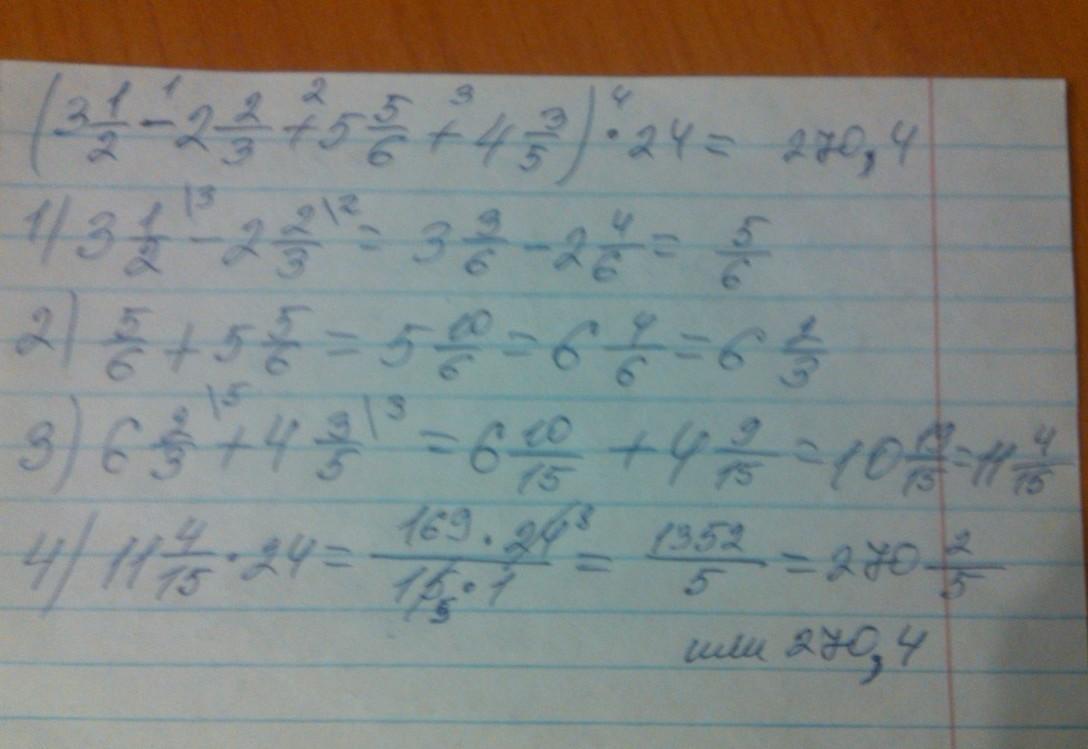 (3 1/2 -¹ 2 2/3 +² 5 5/6 +³ 4 3/5) ·⁴ 24 = 270,4
1) 3 1/2 \3 - 2 2/3 \2 = 3 3/6 - 2 4/6 = 5/6
2) 5/6 + 5 5/6 = 5 10/6 = 6 4/6 = 6 2/3
3) 6 2/3 \5 + 4 3/5 \3 = 6 10/15 + 4 9/15 = 10 19/15 = 11 4/15
4) 11 4/15 · 24 = 169 · 24 8 / 15 5 · 1 = 1352/5 = 270 2/5
или 270,4